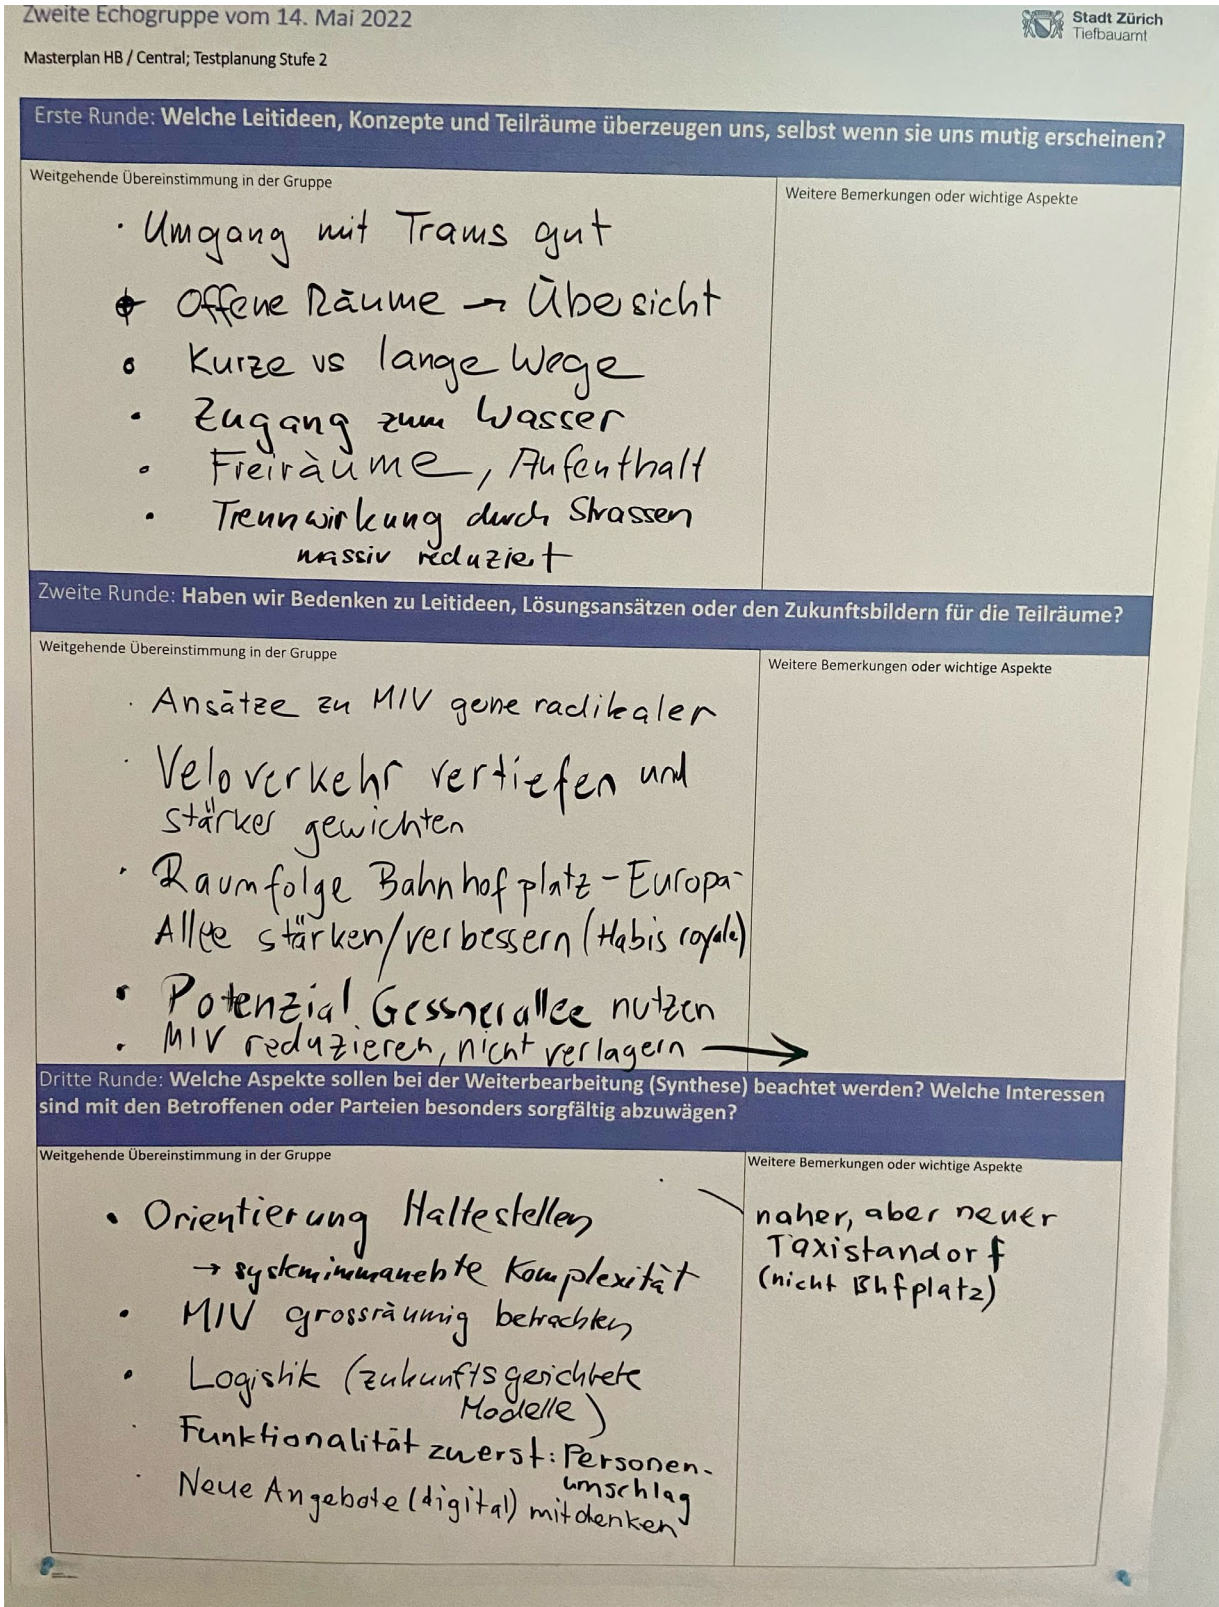 Zweite Echogruppe vom 14. Mai 2022
Stadt Zürich
Tiefbauamt
Masterplan HB / Central; Testplanung Stufe 2
Erste Runde: Welche Leitideen, Konzepte und Teilräume überzeugen uns, selbst wenn sie uns mutig erscheinen?
Weitgehende Übereinstimmung in der Gruppe
· Umgang mit Trams gut
Offene Räume → Übersicht
Kurze vs lange Wege
• Zugang zum Wasser
Freiräume, Aufenthalt
• Trennwirkung durch Strassen
massiv reduziert
Weitere Bemerkungen oder wichtige Aspekte
Zweite Runde: Haben wir Bedenken zu Leitideen, Lösungsansätzen oder den Zukunftsbildern für die Teilräume?
Weitgehende Übereinstimmung in der Gruppe
· Ansätze zu MIV gerne radikaler
· Veloverkehr vertiefen und
stärker gewichten
· Raumfolge Bahnhofplatz - Europa-
Allee stärken/verbessern (Habis royale)
• Potenzial Gessnerallee nutzen
• MIV reduzieren, nicht verlagern →
Weitere Bemerkungen oder wichtige Aspekte
Dritte Runde: Welche Aspekte sollen bei der Weiterbearbeitung (Synthese) beachtet werden? Welche Interessen
sind mit den Betroffenen oder Parteien besonders sorgfältig abzuwägen?
Weitgehende Übereinstimmung in der Gruppe
• Orientierung Haltestellen
→ systemimmanente Komplexität
• MIV grossräumig betrachten
• Logistik (zukunftsgerichtete
Modelle)
· Funktionalität zuerst: Personen-
umschlag
· Neue Angebote (digital) mitdenken
Weitere Bemerkungen oder wichtige Aspekte
naher, aber neuer
Taxistandort
(nicht Bhfplatz)